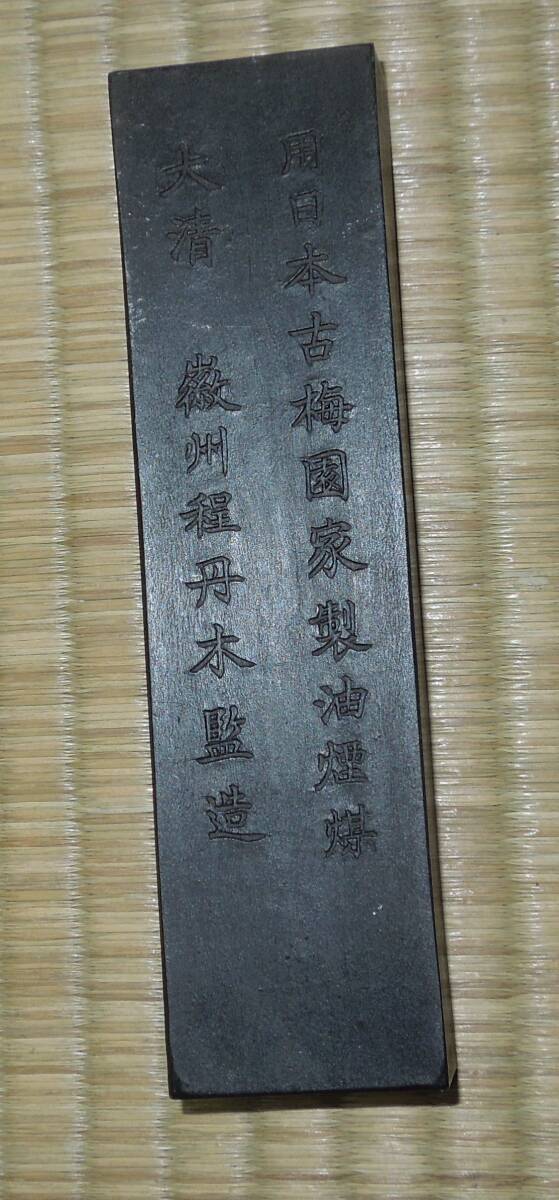 用日本古梅園家製油煙煤
大清 徽州程丹木監造